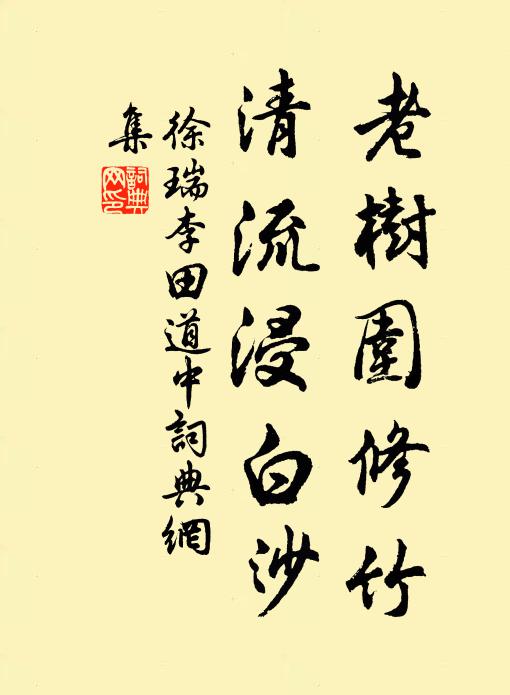 老樹圍修竹
清流浸白沙
徐瑞李田道中詞典網
集
詞典網印